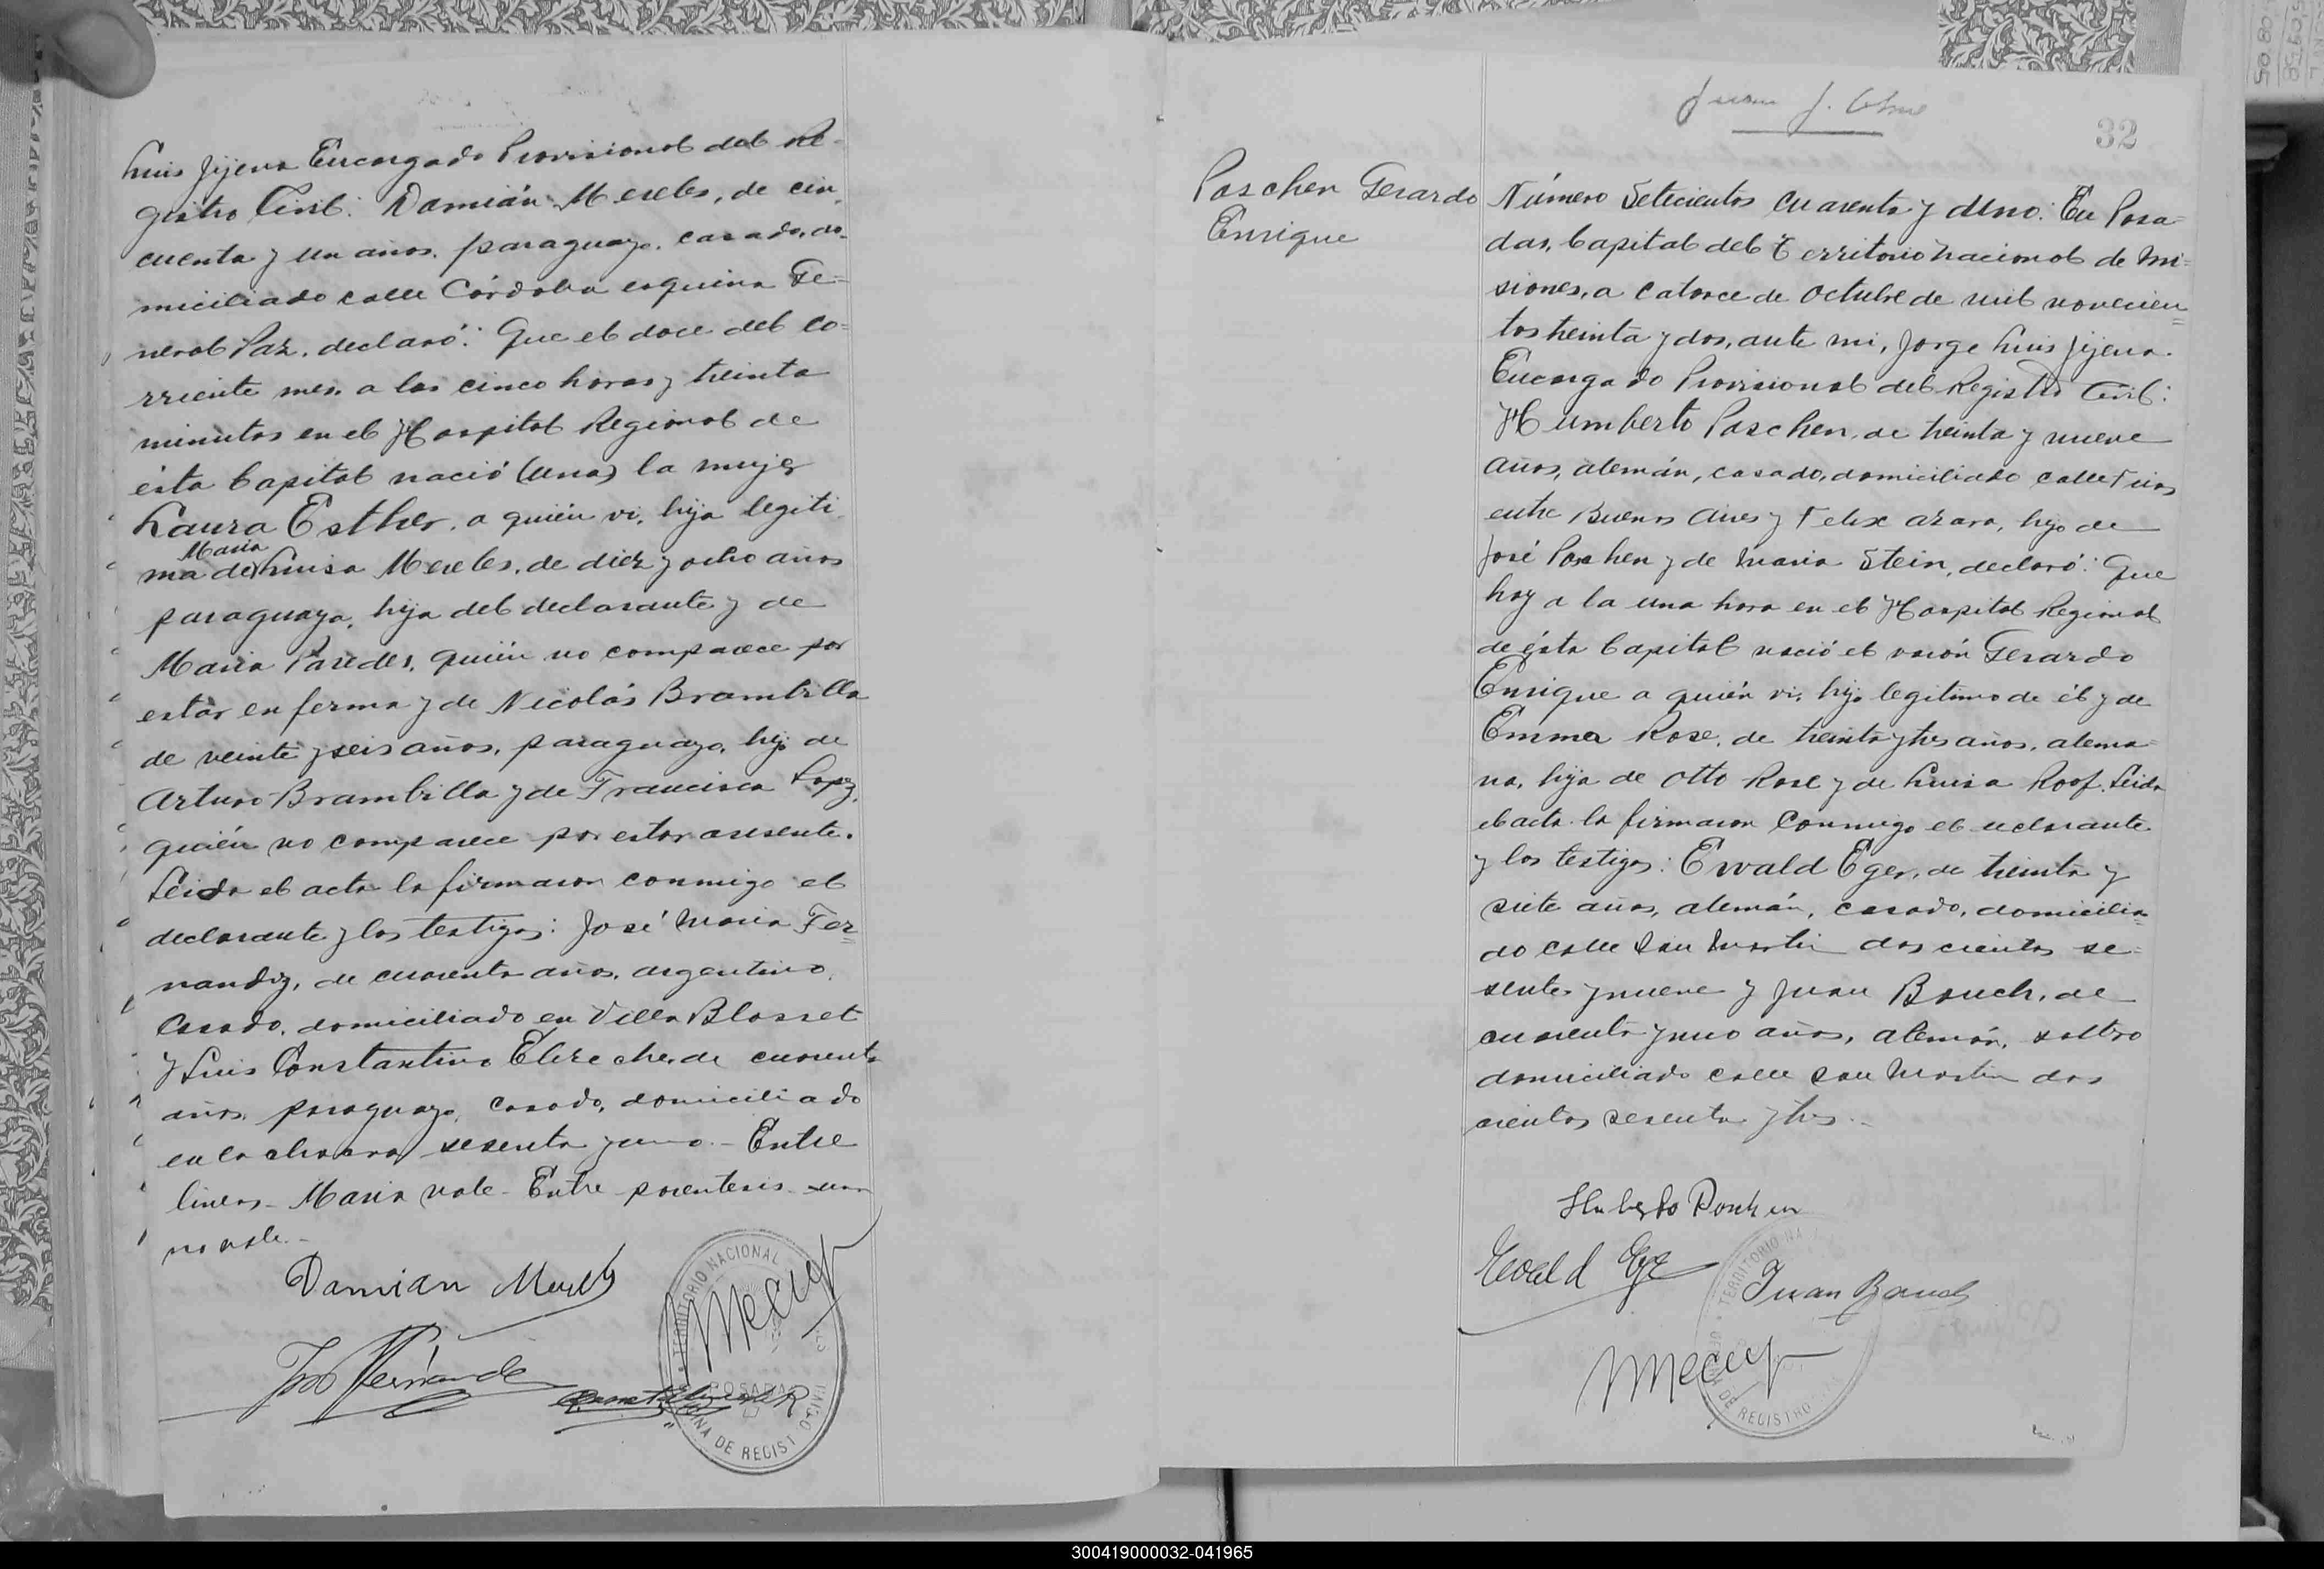 Luis Jijena Encargado Provisional del Re-
gistro Civil: Damián Mereles, de cin-
cuenta y un años, paraguayo, casado, do-
miciliado calle Córdoba esquina Ge=
neral Paz, declaró: Que el doce del co=
rriente mes, a las cinco horas y treinta
minutos en el Hospital Regional de
ésta Capital nació (una) la mujer
Laura Esther, a quién vi, hija legiti-
Maria
ma de Luisa Mereles, de diez y ocho años
paraguaya, hija del declarante y de
Maria Paredes, quién no comparece por
estar enferma y de Nicolás Brambilla
de veinte y seis años, paraguayo, hijo de
Arturo Brambilla y de Francisca Lopez,
quién no comparece por estar ausente.
Leida el acta la firmaron conmigo el
declarante y los testigos: José Maria Fer=
nandez, de cuarenta años, argentino,
casado, domiciliado en Villa Blosset
y Luis Constantino de cuarenta
años, paraguayo, casado, domiciliado
en la chacra sesenta y uno.- Entre
lineas- Maria vale- Entre parentesis- una
no vale.-
Damian Mereles
José Fernandez
TERRITORIO NACIONAL
POSADAS
OFICINA DE REGISTRO CIVIL
32
Paschen Gerardo
Enrique
Número Setecientos cuarenta y Uno: En Posa=
das, Capital del Territorio nacional de Mi=
siones, a catorce de Octubre de mil novecien=
tos treinta y dos, ante mi, Jorge Luis Jijena.
Encargado Provisional del Registro Civil:
Humberto Paschen, de treinta y nueve
años, alemán, casado, domiciliado calle
entre Buenos Aires y Felix Azara, hijo de
José Paschen y de Maria Stein, declaró: Que
hoy a la una hora en el Hospital Regional
de ésta Capital nació el varón Gerardo
Enrique a quién vi, hijo legitimo de él y de
Emma Rose, de treinta y tres años, alema=
na, hija de Otto Rose y de Luisa Roof. Leida
el acta la firmaron conmigo el declarante
y los testigos: Ewald Eger, de treinta y
siete años, alemán, casado, domicilia=
do calle San Martin doscientos se=
senta y nueve y Juan Bauch, de
cuarenta y uno años, alemán, soltero
domiciliado calle San Martin dos
cientos sesenta y tres.-
Humberto Paschen
Ewald Eger
Juan Bauch
300419000032-041965